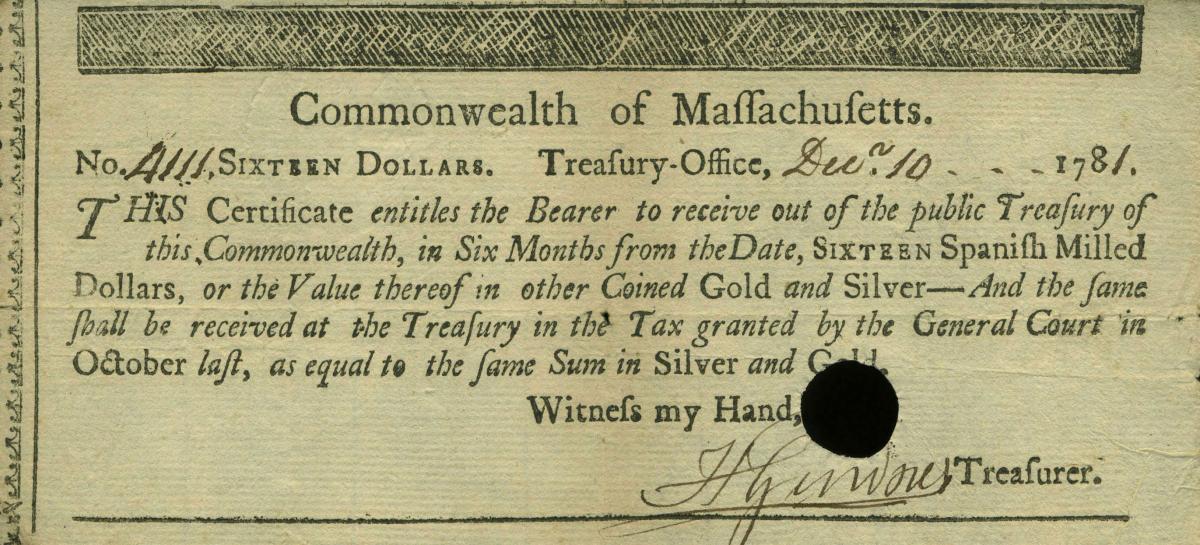 Commonwealth of Maſſachuſetts.
No. 4111. SIXTEEN DOLLARS. Treaſury-Office, Decr. 10 - - - 1781.
THIS Certificate entitles the Bearer to receive out of the public Treaſury of
this Commonwealth, in Six Months from the Date, SIXTEEN Spaniſh Milled
Dollars, or the Value thereof in other Coined Gold and Silver—And the ſame
ſhall be received at the Treaſury in the Tax granted by the General Court in
October laſt, as equal to the same Sum in Silver and Gold.
Witneſs my Hand,
H Gardner Treaſurer.